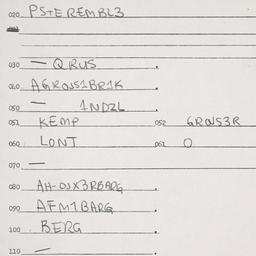 020 PSTEREMBL3
030 — QRUS .
040 AGROUS1BR1K .
050 — 1NDZL
051 KEMP 052 GROUS3R
060 LONT 061 O
070 —
080 AH-OUX3RBARG .
090 AFM1BARG .
100 BERG .
110 — .